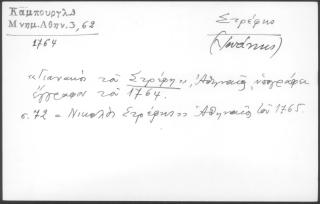 Καμπουργλ
Μνημ.Αθην.3,62
1764
Στρέφης
(Γιανάκης)
«Γιανακό τοῦ Στρέφη», Ἀθηναῖος, ὑπογράφει
ἔγγραφο τοῦ 1764.
σ.72 «Νικολός Στρέφης» Ἀθηναῖος τοῦ 1765.